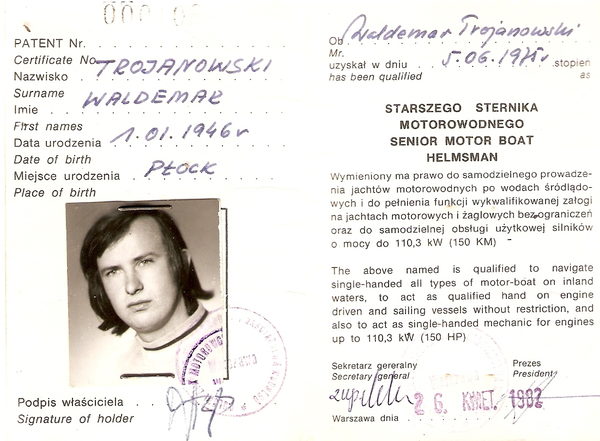 PATENT Nr.
Certificate No
Nazwisko TROJANOWSKI
Surname
Imie WALDEMAR
First names
Data urodzenia 1.01.1946r
Date of birth
Miejsce urodzenia PŁOCK
Place of birth
Podpis właściciela
Signature of holder
Ob. Waldemar Trojanowski
Mr.
uzyskał w dniu 5.06.1975r stopień
has been qualified as
STARSZEGO STERNIKA
MOTOROWODNEGO
SENIOR MOTOR BOAT
HELMSMAN
Wymieniony ma prawo do samodzielnego prowadze-
nia jachtów motorowodnych po wodach śródlądo-
wych i do pełnienia funkcji wykwalifikowanej załogi
na jachtach motorowych i żaglowych bez ograniczeń
oraz do samodzielnej obsługi użytkowej silników
o mocy do 110,3 kW (150 KM)
The above named is qualified to navigate
single-handed all types of motor-boat on inland
waters, to act as qualified hand on engine
driven and sailing vessels without restriction, and
also to act as single-handed mechanic for engines
up to 110,3 kW (150 HP)
Sekretarz gereralny Prezes
Secretary general President
26. KWIET. 1982
Warszawa dnia